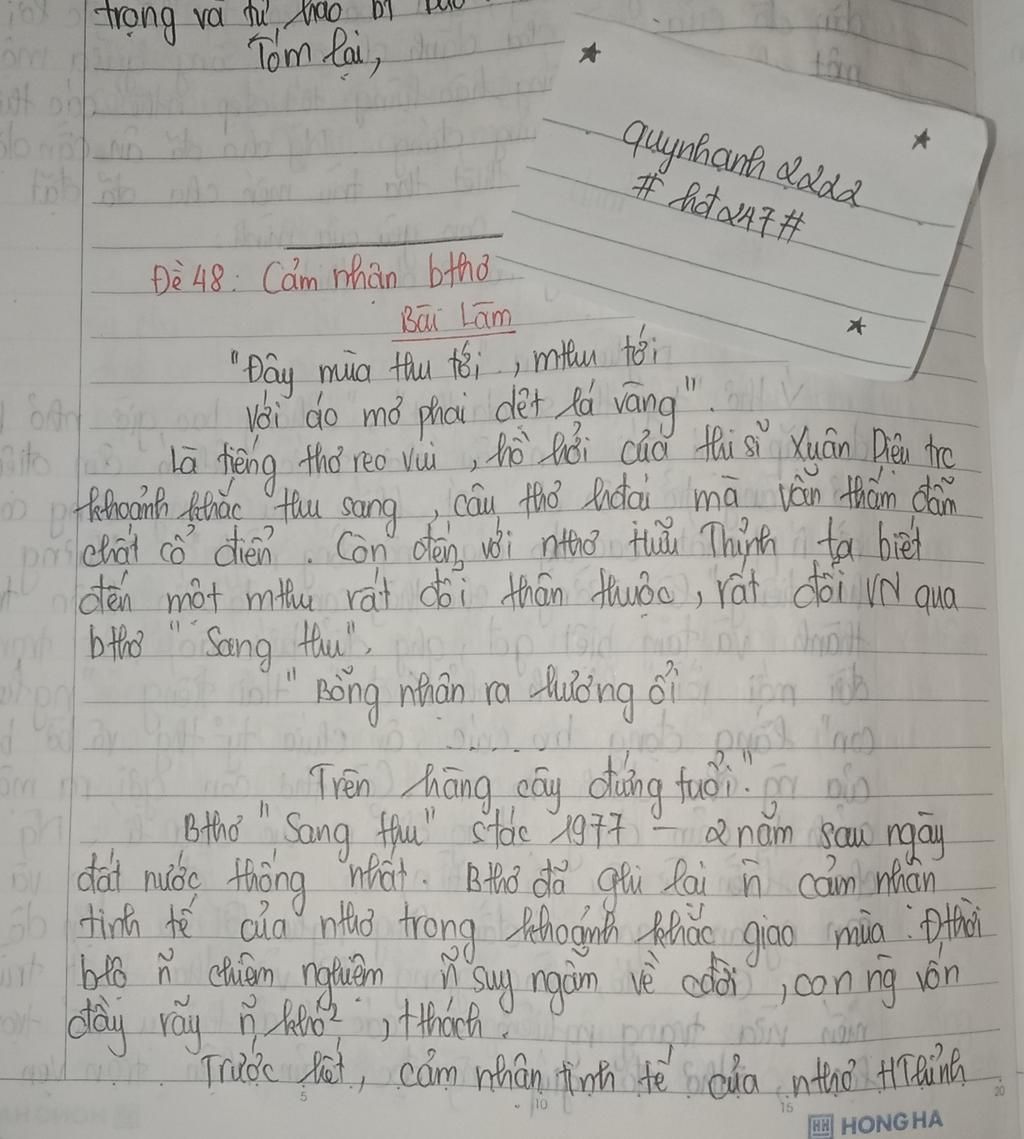 trọng và tự hào bi
Tóm lại,
quynhanh2222
# hot247#
Đề 48: Cảm nhận bthơ
Bài Làm
"Đây mùa thu tới, mthu tới
Với áo mơ phai dệt lá vàng".
Là tiếng thơ reo vui, hồ hởi của thi sĩ Xuân Diệu trc
khoảnh khắc thu sang, câu thơ hđại mà vẫn thấm đẫm
chất cổ điển. Còn đến với nthơ Hữu Thỉnh ta biết
đến một mthu rất đỗi thân thuộc, rất đỗi VN qua
bthơ "Sang thu".
"Bỗng nhận ra hương ổi
.......
Trên hàng cây đứng tuổi."
Bthơ "Sang thu" stác 1977 - 2 năm sau ngày
đất nước thống nhất. Bthơ đã ghi lại ~n cảm nhận
tinh tế của nthơ trong khoảnh khắc giao mùa. Đthời
btỏ ~n chiêm nghiệm ~n suy ngẫm về cđời, con ng vốn
đầy rẫy ~n khó², tthách.
Trước hết, cảm nhận tinh tế của nthơ HThỉnh
5 10 15 20
HH HONG HA